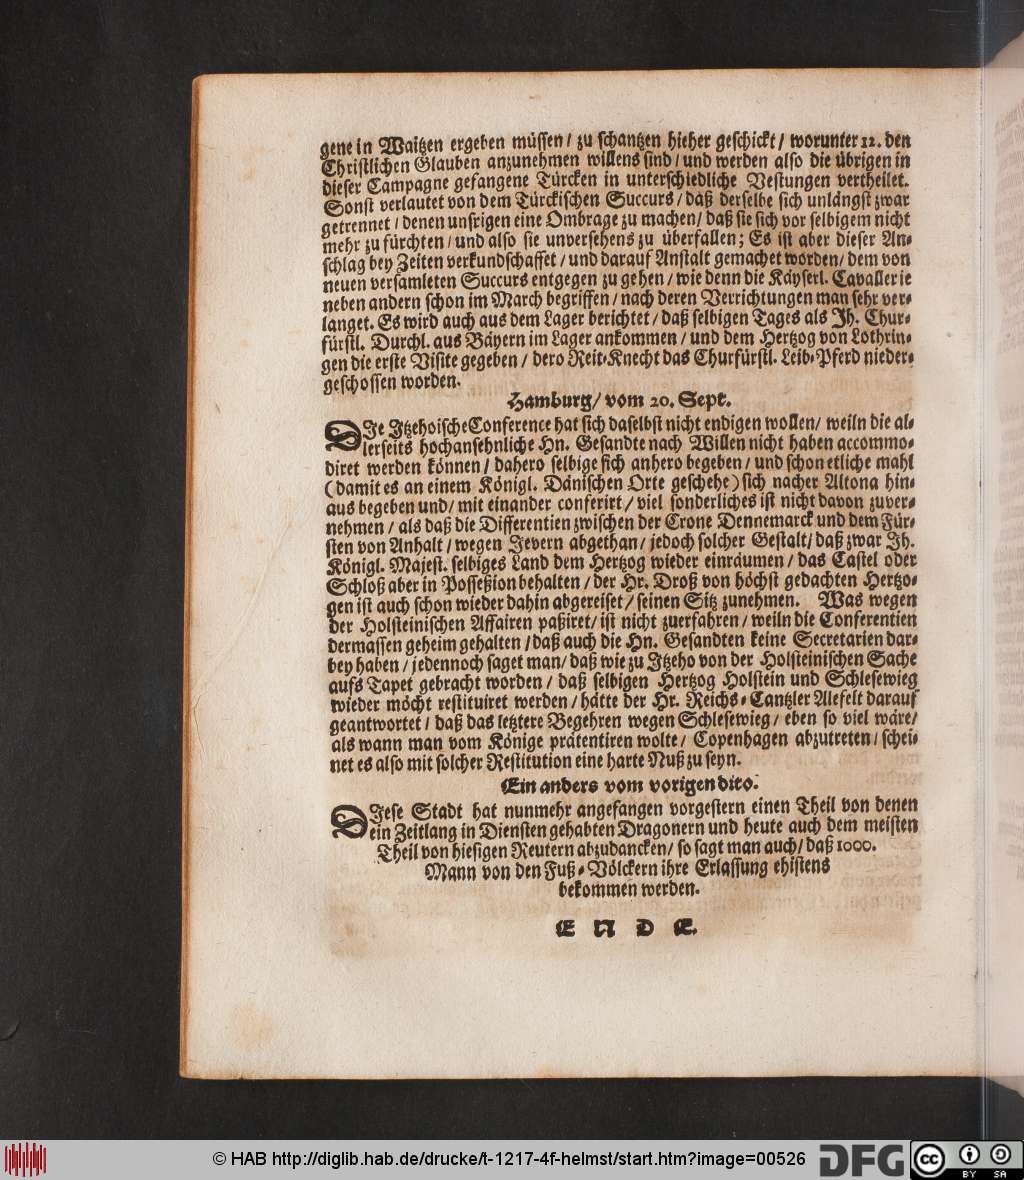 gene in Waitzen ergeben müssen / zu schantzen hieher geschickt / worunter 12. den
Christlichen Glauben anzunehmen willens sind / und werden also die übrigen in
dieser Campagne gefangene Türcken in unterschiedliche Vestungen vertheilet.
Sonst verlautet von dem Türckischen Succurs / daß derselbe sich unlängst zwar
getrennet / denen unsrigen eine Ombrage zu machen / daß sie sich vor selbigem nicht
mehr zu fürchten / und also sie unversehens zu überfallen; Es ist aber dieser An-
schlag bey Zeiten verkundschaffet / und darauf Anstalt gemachet worden / dem von
neuen versamleten Succurs entgegen zu gehen / wie denn die Käyserl. Cavallerie
neben andern schon im March begriffen / nach deren Verrichtungen man sehr ver-
langet. Es wird auch aus dem Lager berichtet / daß selbigen Tages als Ih. Chur-
fürstl. Durchl. aus Bäyern im Lager ankommen / und dem Hertzog von Lothrin-
gen die erste Visite gegeben / dero Reit-Knecht das Churfürstl. Leib-Pferd nieder-
geschossen worden.
Hamburg / vom 20. Sept.
DIe Itzehoische Conference hat sich daselbst nicht endigen wollen / weiln die al-
lerseits hochansehnliche Hn. Gesandte nach Willen nicht haben accommo-
diret werden können / dahero selbige sich anhero begeben / und schon etliche mahl
(damit es an einem Königl. Dänischen Orte geschehe) sich nacher Altona hin-
aus begeben und / mit einander conferirt / viel sonderliches ist nicht davon zuver-
nehmen / als daß die Differentien zwischen der Crone Dennemarck und dem Für-
sten von Anhalt / wegen Jevern abgethan / jedoch solcher Gestalt / daß zwar Ih.
Königl. Majest. selbiges Land dem Hertzog wieder einräumen / das Castel oder
Schloß aber in Posseßion behalten / der Hr. Droß von höchst gedachten Hertzo-
gen ist auch schon wieder dahin abgereiset / seinen Sitz zunehmen. Was wegen
der Holsteinischen Affairen paßiret / ist nicht zuerfahren / weiln die Conferentien
dermassen geheim gehalten / daß auch die Hn. Gesandten keine Secretarien dar-
bey haben / jedennoch saget man / daß wie zu Itzeho von der Holsteinischen Sache
aufs Tapet gebracht worden / daß selbigen Hertzog Holstein und Schlesewieg
wieder möcht restituiret werden / hätte der Hr. Reichs-Cantzler Alefelt darauf
geantwortet / daß das letztere Begehren wegen Schlesewieg / eben so viel wäre /
als wann man vom Könige prätentiren wolte / Copenhagen abzutreten / schei-
net es also mit solcher Restitution eine harte Nuß zu seyn.
Ein anders vom vorigen dito.
DIese Stadt hat nunmehr angefangen vorgestern einen Theil von denen
ein Zeitlang in Diensten gehabten Dragonern und heute auch dem meisten
Theil von hiesigen Reutern abzudancken / so sagt man auch / daß 1000.
Mann von den Fuß-Völckern ihre Erlassung ehistens
bekommen werden.
ENDE.
© HAB http://diglib.hab.de/drucke/t-1217-4f-helmst/start.htm?image=00526
DFG
cc BY SA